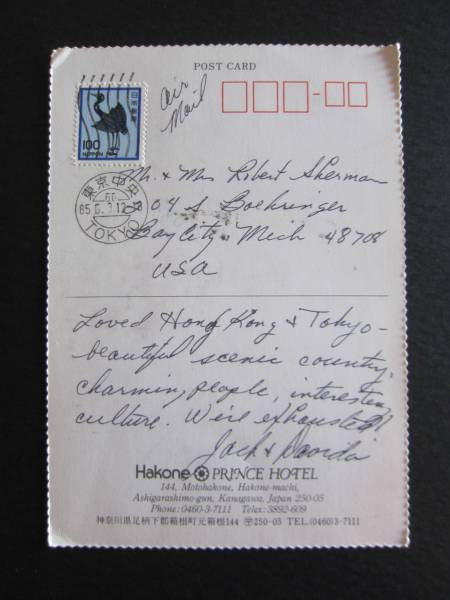 POST CARD
air
Mail
日本郵便
100
NIPPON
東京中央
60
85 6. 3.12
TOKYO
Mr. & Mrs Robert Sherman
204 S. Boehringer
Bay City, Mich 48708
USA
Loved Hong Kong & Tokyo -
beautiful scenic country,
charming people, interesting
culture. We're exhausted!
Jack &
Hakone PRINCE HOTEL
144, Motohakone, Hakone-machi,
Ashigarashimo-gun, Kanagawa, Japan 250-05
Phone: 0460-3-7111 Telex: 3892-609
神奈川県足柄下郡箱根町元箱根144 〒250-05 TEL.(0460)3-7111